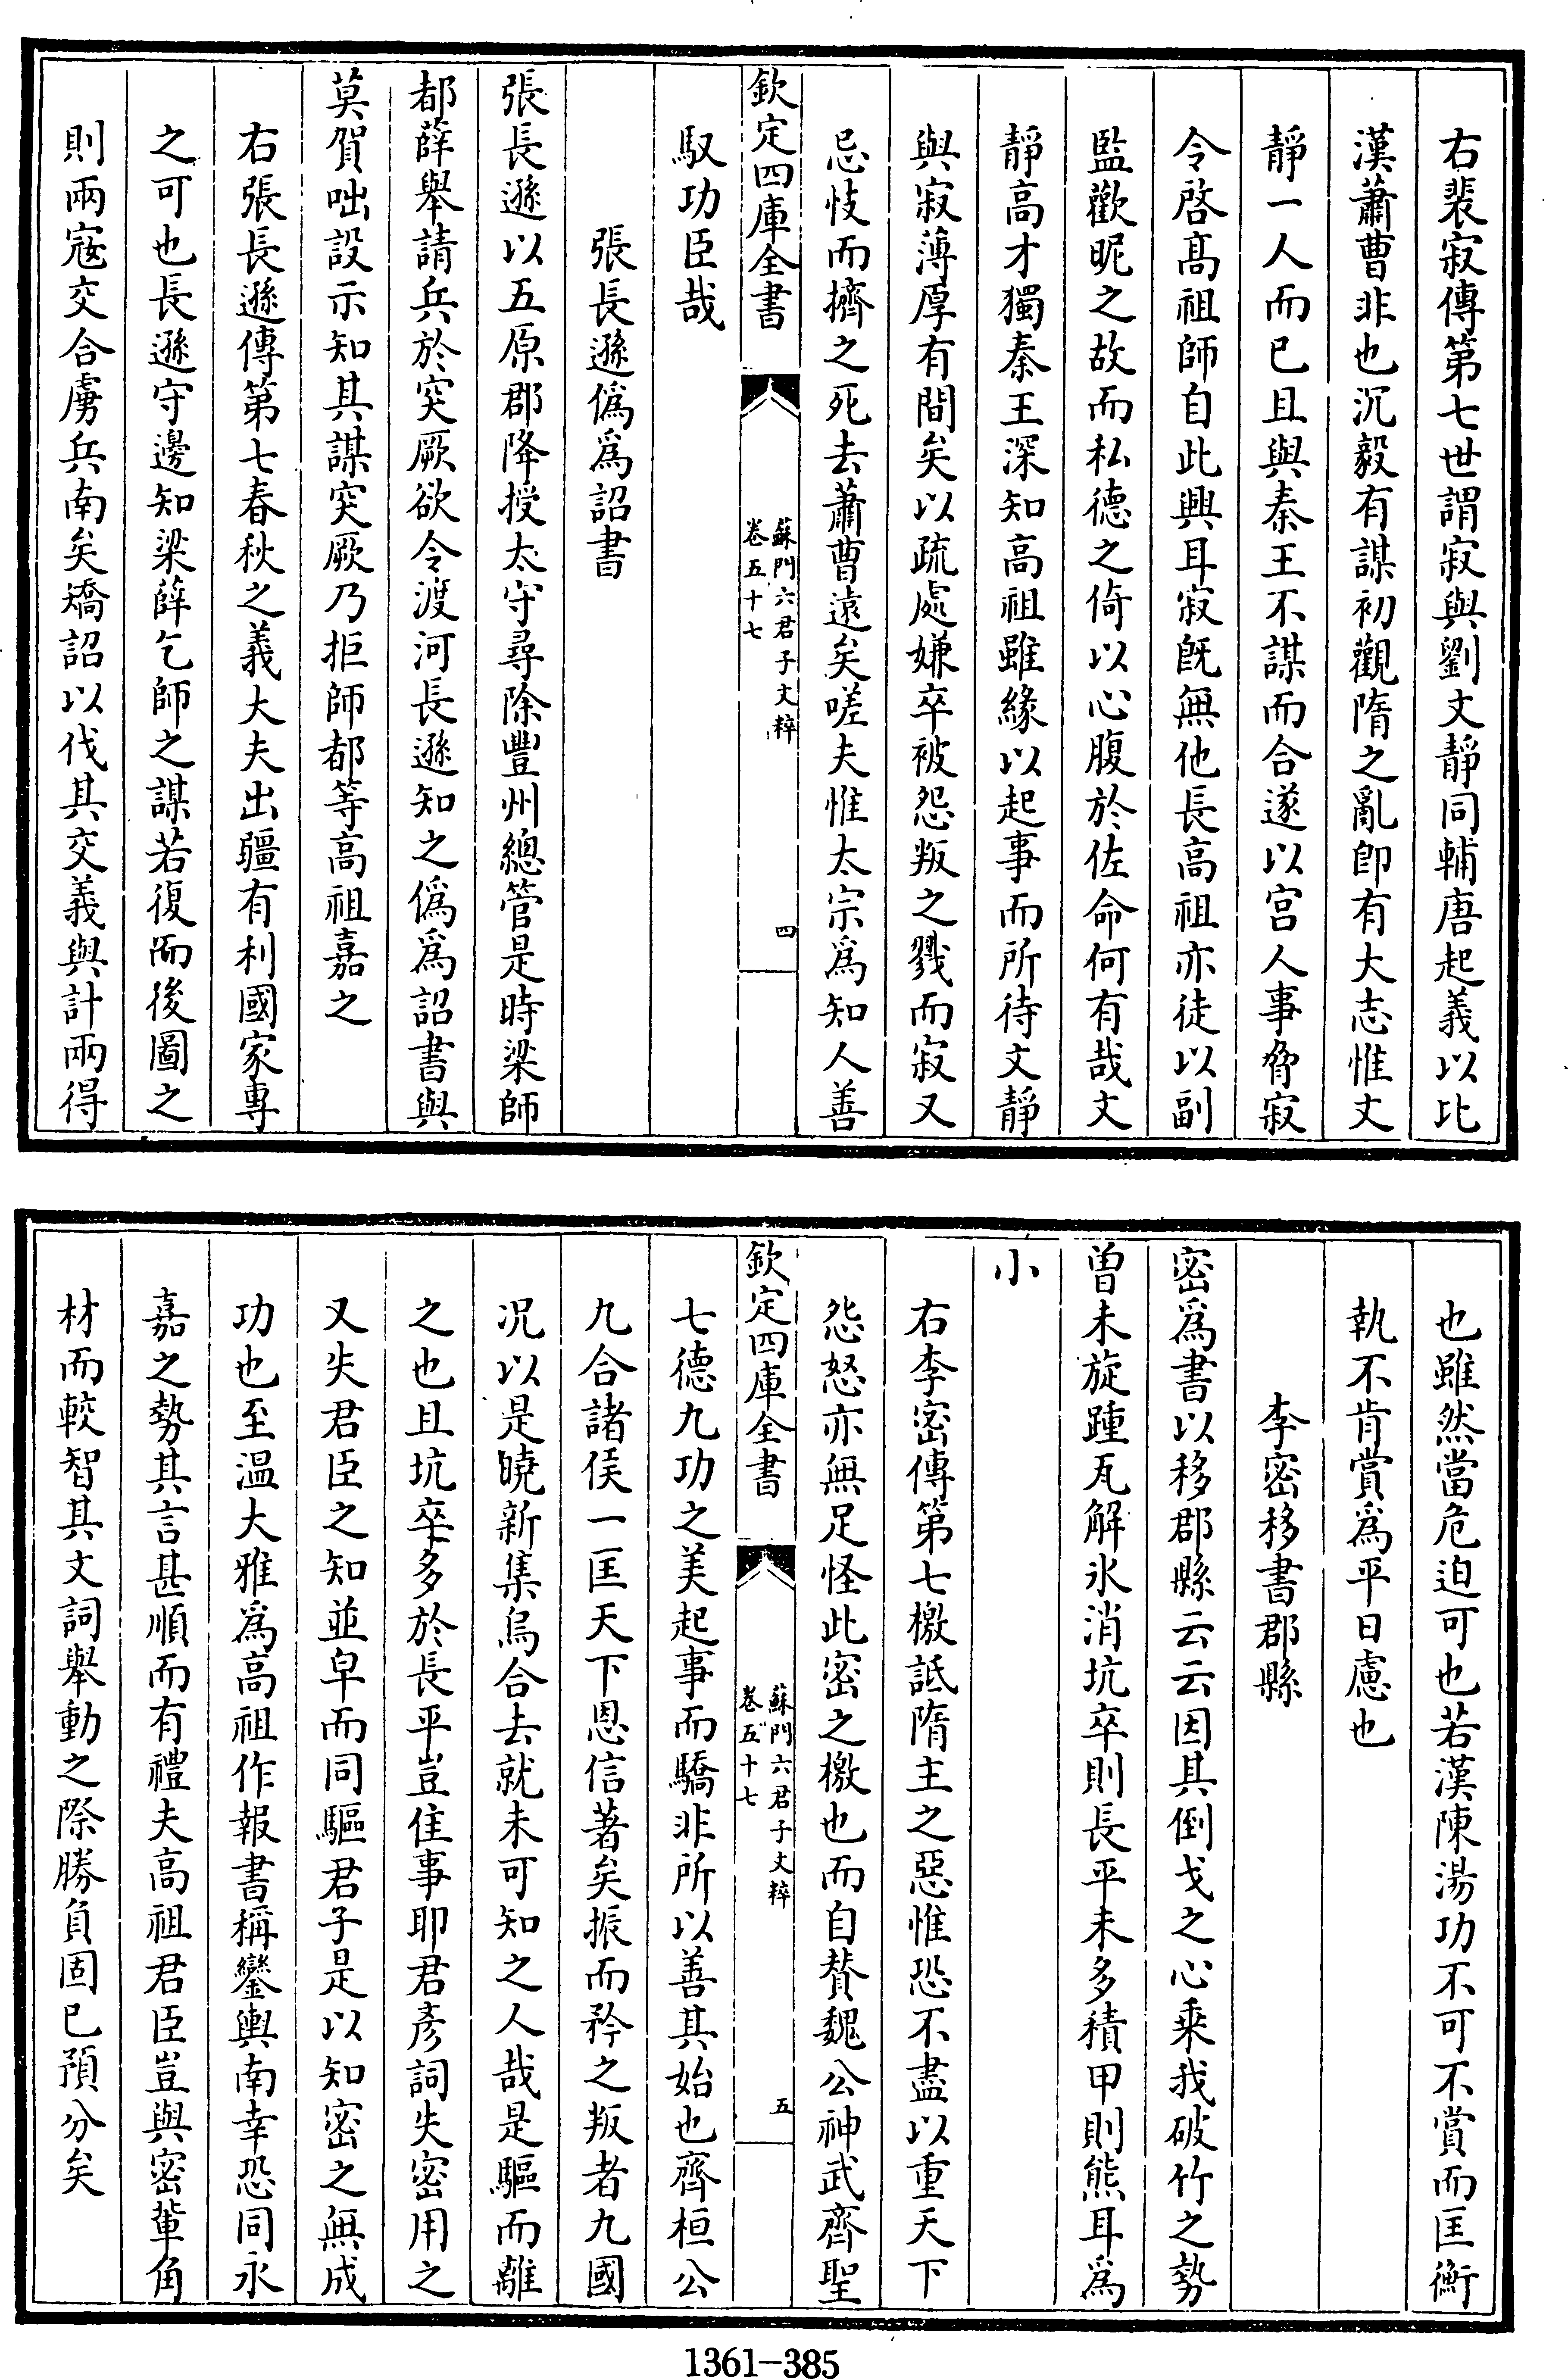 右裴寂傳第七世謂寂與劉文靜同輔唐起義以比
漢蕭曹非也沉毅有謀初觀隋之亂卽有大志惟文
靜一人而已且與秦王不謀而合遂以宮人事脅寂
令啓髙祖師自此興耳寂旣無他長高祖亦徒以副
監歡昵之故而私德之倚以心腹於佐命何有哉文
靜高才獨秦王深知高祖雖緣以起事而所待文靜
與寂薄厚有間矣以疏處嫌卒被怨叛之戮而寂又
忌忮而擠之死去蕭曹遠矣嗟夫惟太宗爲知人善
欽定四庫全書
蘇門六君子文粹
卷五十七
四
馭功臣哉
張長遜僞爲詔書
張長遜以五原郡降授太守尋除豐州總管是時梁師
都薛舉請兵於突厥欲令渡河長遜知之僞爲詔書與
莫賀咄設示知其謀突厥乃拒師都等高祖嘉之
右張長遜傳第七春秋之義大夫出疆有利國家專
之可也長遜守邊知梁薛乞師之謀若復而後圖之
則兩寇交合虜兵南矣矯詔以伐其交義與計兩得
也雖然當危迫可也若漢陳湯功不可不賞而匡衡
執不肯賞爲平日慮也
李密移書郡縣
密爲書以移郡縣云云因其倒戈之心乘我破竹之勢
曾未旋踵瓦解氷消坑卒則長平未多積甲則熊耳爲
小
右李密傳第七檄詆隋主之惡惟恐不盡以重天下
怨怒亦無足怪此密之檄也而自贊魏公神武齊聖
欽定四庫全書
蘇門六君子文粹
卷五十七
五
七德九功之美起事而驕非所以善其始也齊桓公
九合諸侯一匡天下恩信著矣振而矜之叛者九國
况以是曉新集烏合去就未可知之人哉是驅而離
之也且坑卒多於長平豈佳事耶君彥詞失密用之
又失君臣之知並皁而同驅君子是以知密之無成
功也至温大雅爲高祖作報書稱鑾輿南幸恐同永
嘉之勢其言甚順而有禮夫高祖君臣豈與密軰角
材而較智其文詞舉動之際勝負固已預分矣
1361-385